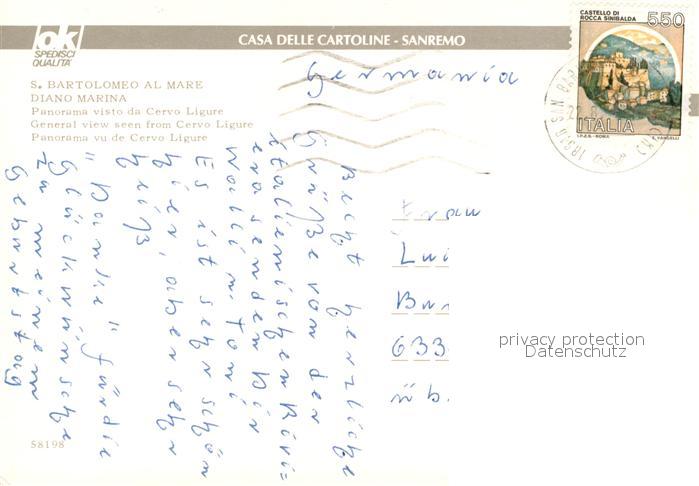 ok
SPEDISCI
QUALITÀ
CASA DELLE CARTOLINE - SANREMO
CASTELLO DI
ROCCA SINIBALDA
550
ITALIA
I.P.Z.S.-ROMA
E. VANGELLI
S. BARTOLOMEO AL MARE
DIANO MARINA
Panorama visto da Cervo Ligure
General view seen from Cervo Ligure
Panorama vu de Cervo Ligure
Germania
Recht herzliche
Grüße von der
italienischen Rivi=
era senden Dir
Walli u. Toni
Es ist sehr schön
hier, aber sehr
heiß
"Danke" für die
Glückwünsche
zu meinem
Geburtstag
Frau
Lui
633
üb.
58198
privacy protection
Datenschutz